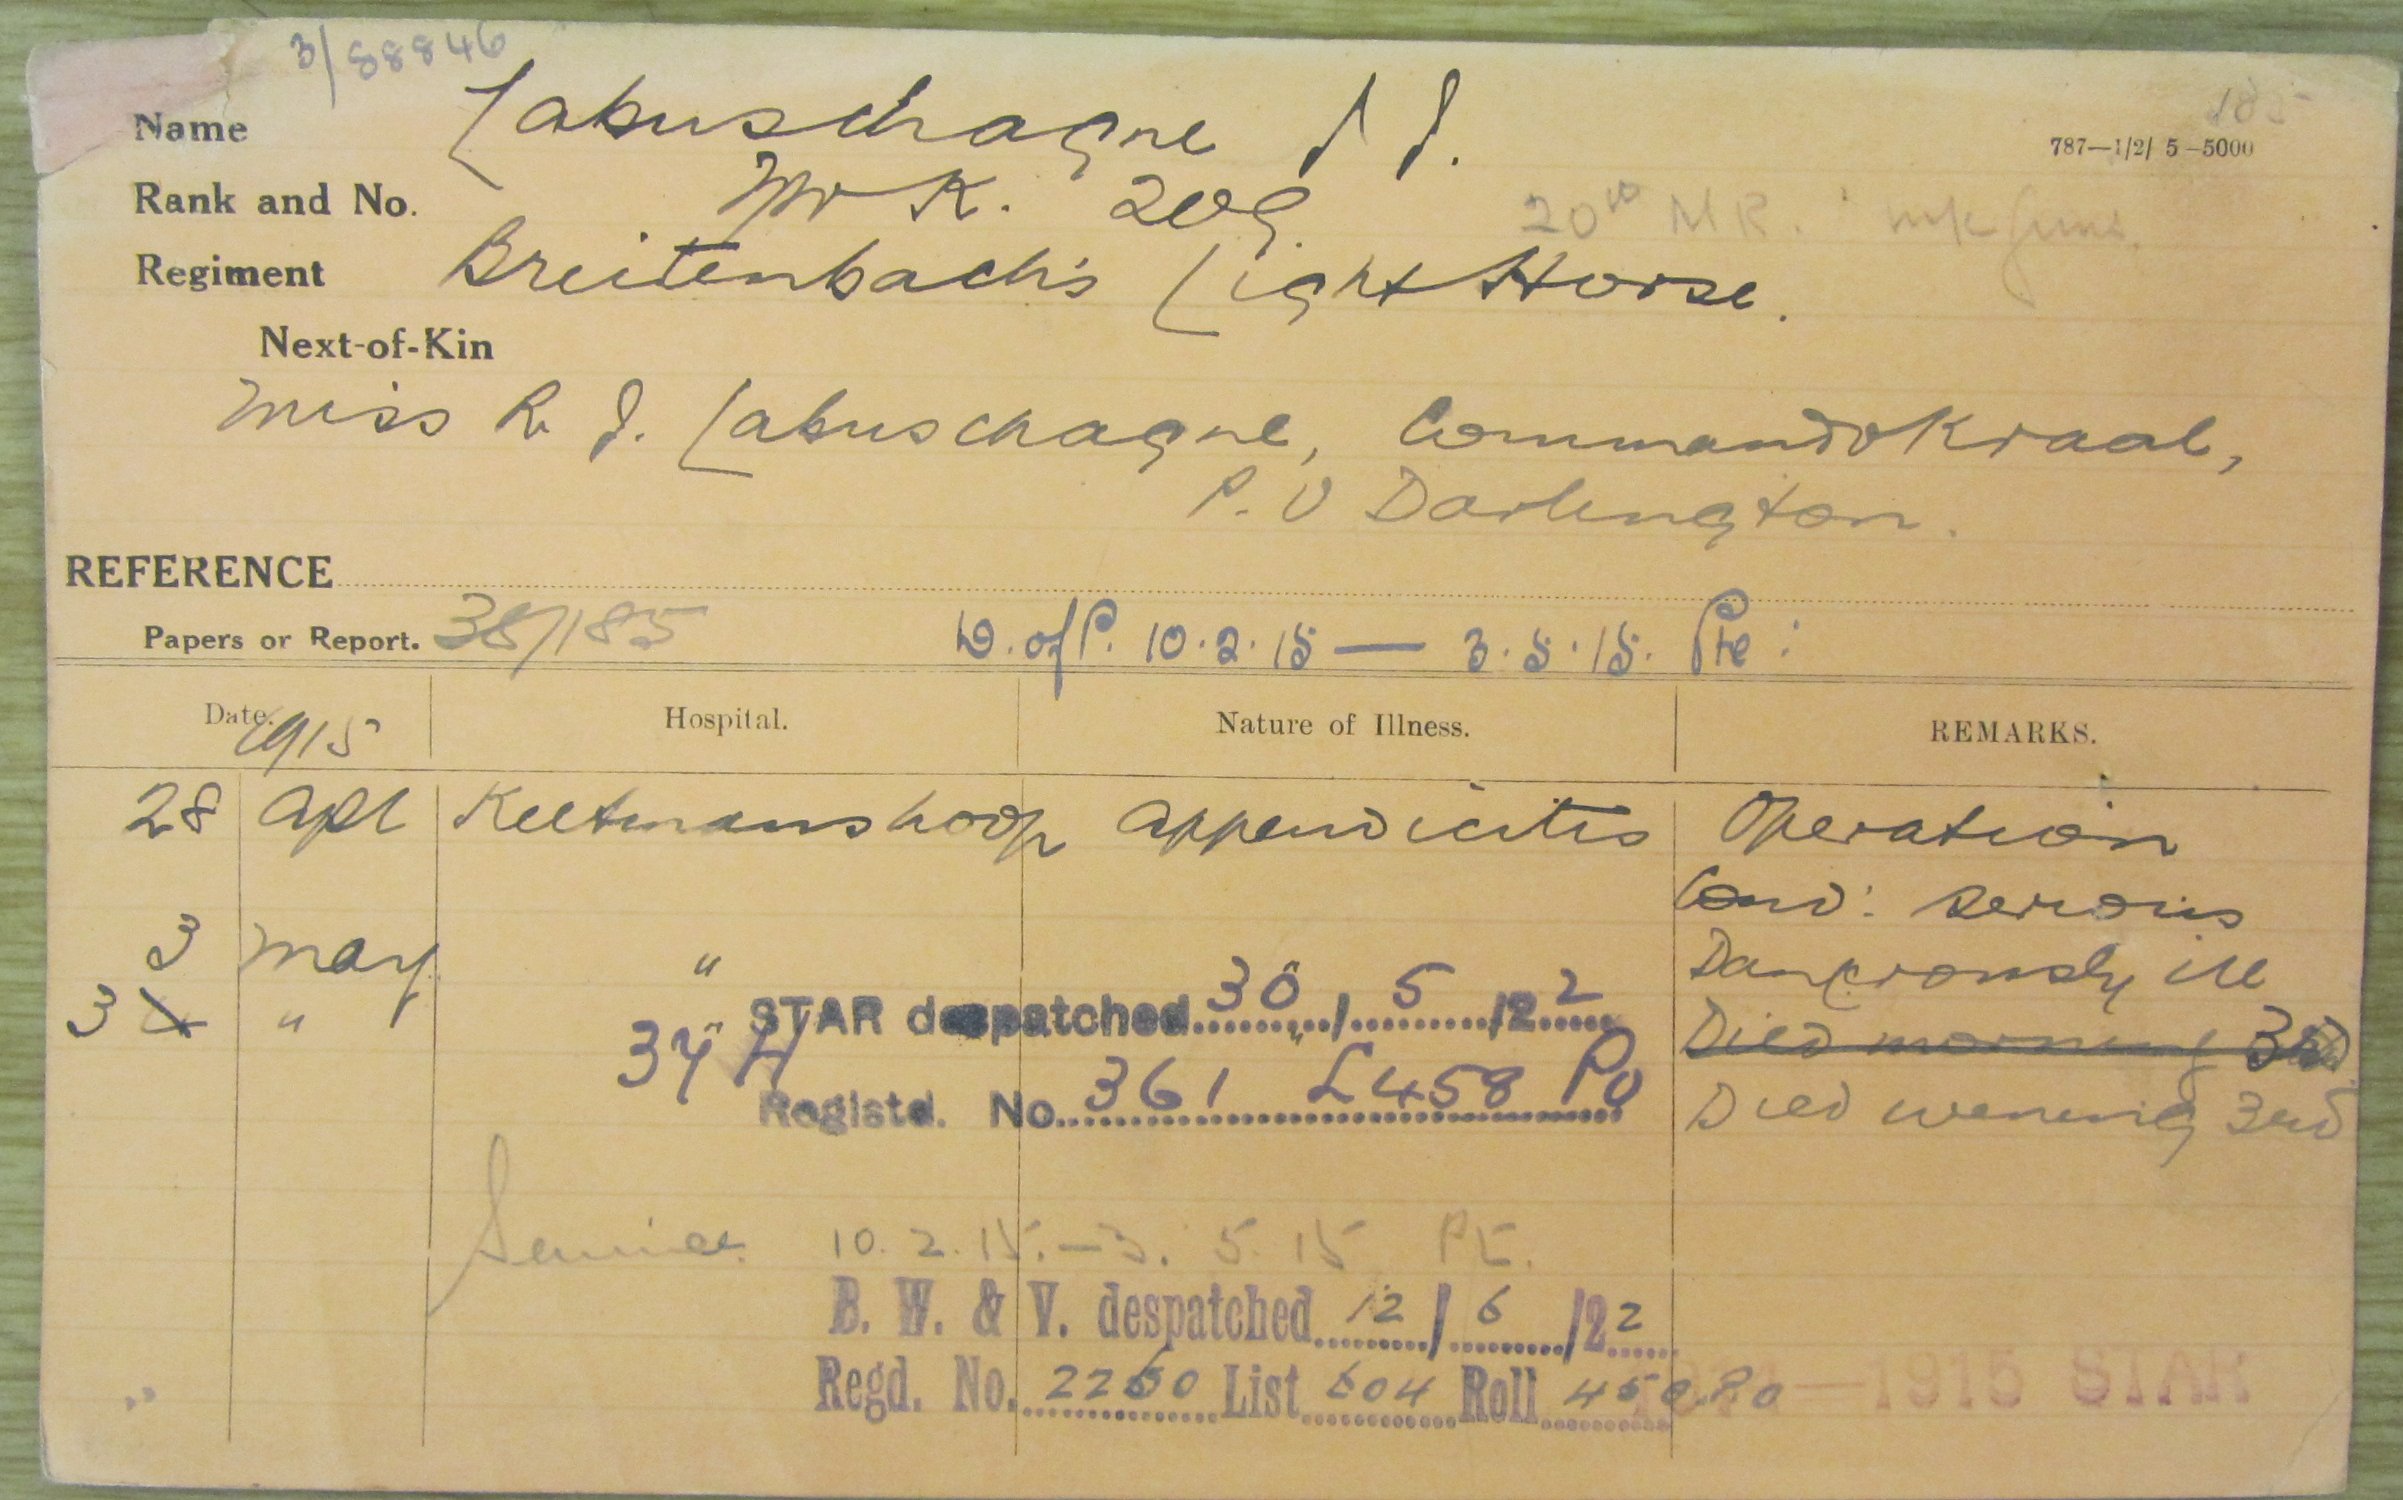 3/88846
185
Name Labuschagne J J.
787—1/2/ 5—5000
Rank and No. K. 209.
20th M R.
Regiment Breitenbach's Light Horse.
Next-of-Kin
Miss R. J. Labuschagne, Commandokraal,
P. O Darlington.
REFERENCE
Papers or Report. 38/185 D. of P. 10.2.15 — 3.5.15. Pte:
Date. 1915 Hospital. Nature of Illness. REMARKS.
28 Apl Keetmanshoop Appendicitis Operation
Cond: serious
3 May " " Dangerously ill
STAR despatched 30/5/22
3 4 " " " Died morning 3rd
34 H
Registd. No. 361 L458 Po
Died evening 3rd
Service 10.2.15.—3.5.15 Pt.
B. W. & V. despatched 12/6/22
Regd. No. 2260 List 604 Roll 450
—1915 STAR